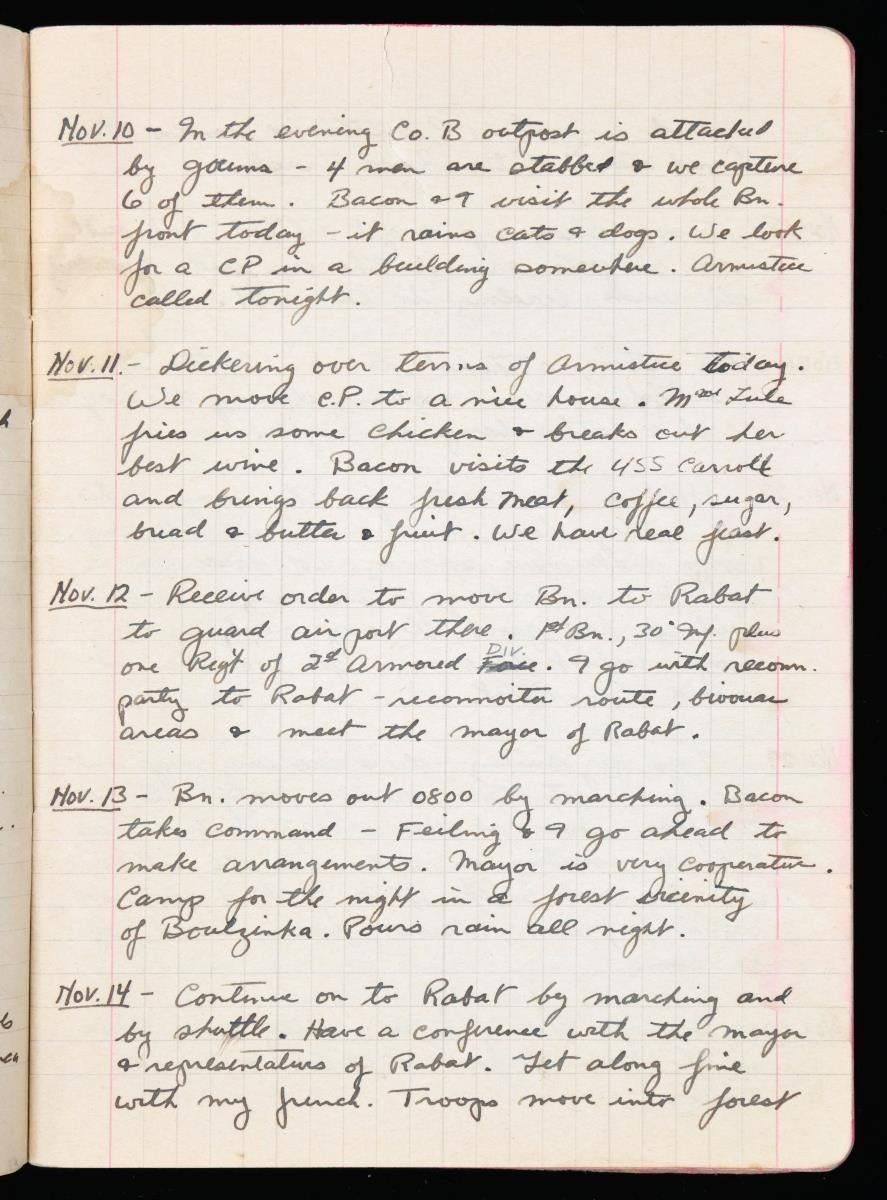 Nov. 10 - In the evening Co. B outpost is attacked
by goums - 4 men are stabbed & we capture
6 of them. Bacon & I visit the whole Bn.
front today - it rains cats & dogs. We look
for a CP in a building somewhere. Armistice
called tonight.
Nov. 11. - Dickering over terms of Armistice today.
We move C.P. to a nice house. Mad Lule
fries us some chicken & breaks out her
best wine. Bacon visits the USS Carroll
and brings back fresh meat, coffee, sugar,
bread & butter & fruit. We have real feast.
Nov. 12 - Receive order to move Bn. to Rabat
to guard airport there. 1st Bn., 30" Inf. plus
DIV.
one Reg't of 2d Armored Force. I go with reconn.
party to Rabat - reconnoiter route, bivouac
areas & meet the mayor of Rabat.
Nov. 13 - Bn. moves out 0800 by marching. Bacon
takes command - Feiling & I go ahead to
make arrangements. Mayor is very cooperative.
Camp for the night in a forest vicinity
of Boulzinka. Pours rain all night.
Nov. 14 - Continue on to Rabat by marching and
by shuttle. Have a conference with the mayor
& representatives of Rabat. Get along fine
with my french. Troops move into forest